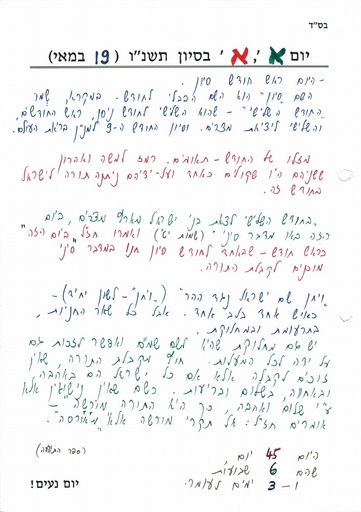 בס"ד
יום א', א' בסיון תשנ"ו (19 במאי)
- היום ראש חודש סיון.
השם "סיון" הוא השם הבבלי לחודש. במקרא, שמו
"החודש השלישי" - שהוא השלישי לחודש ניסן, ראש החודשים,
והשלישי ליציאת מצרים. וסיון החודש ה-9 למנין בריאת העולם.
מזלו של החודש - תאומים. רמז למשה ואהרון
ששניהם היו שקולים כאחד ועל-ידיהם ניתנה תורה לישראל
בחודש זה.
"בחודש השלישי לצאת בני ישראל מארץ מצרים, ביום
הזה באו מדבר סיני" (שמות י"ט) ואמרו חז"ל "ביום הזה"
כראש חודש - שבאחד לחודש סיון חנו במדבר סיני
מוכנים לקבלת התורה.
"ויחן שם ישראל נגד ההר" ("ויחן" - לשון יחיד) -
"כאיש אחד בלב אחד. אבל כל שאר החניות,
בתרעומת ובמחלוקת.
יש גם מחלוקת שהיא לשם שמים ואפשר לזכות גם
על ידה לכל המעלות. חוץ מקבלת התורה, שאין
זוכים לקבלה אלא אם כל ישראל הם באהבה,
ובאחווה, בשלום וברעות. כשם שאין נישואין אלא
ע"י שלום ואהבה, כך היא התורה "מורשה" -
אומרים חז"ל: אל תקרי מורשה אלא "מאורסה".
(ספר התודעה)
היום 45 יום
שהם 6 שבועות
ו-3 ימים לעומר.
יום נעים!